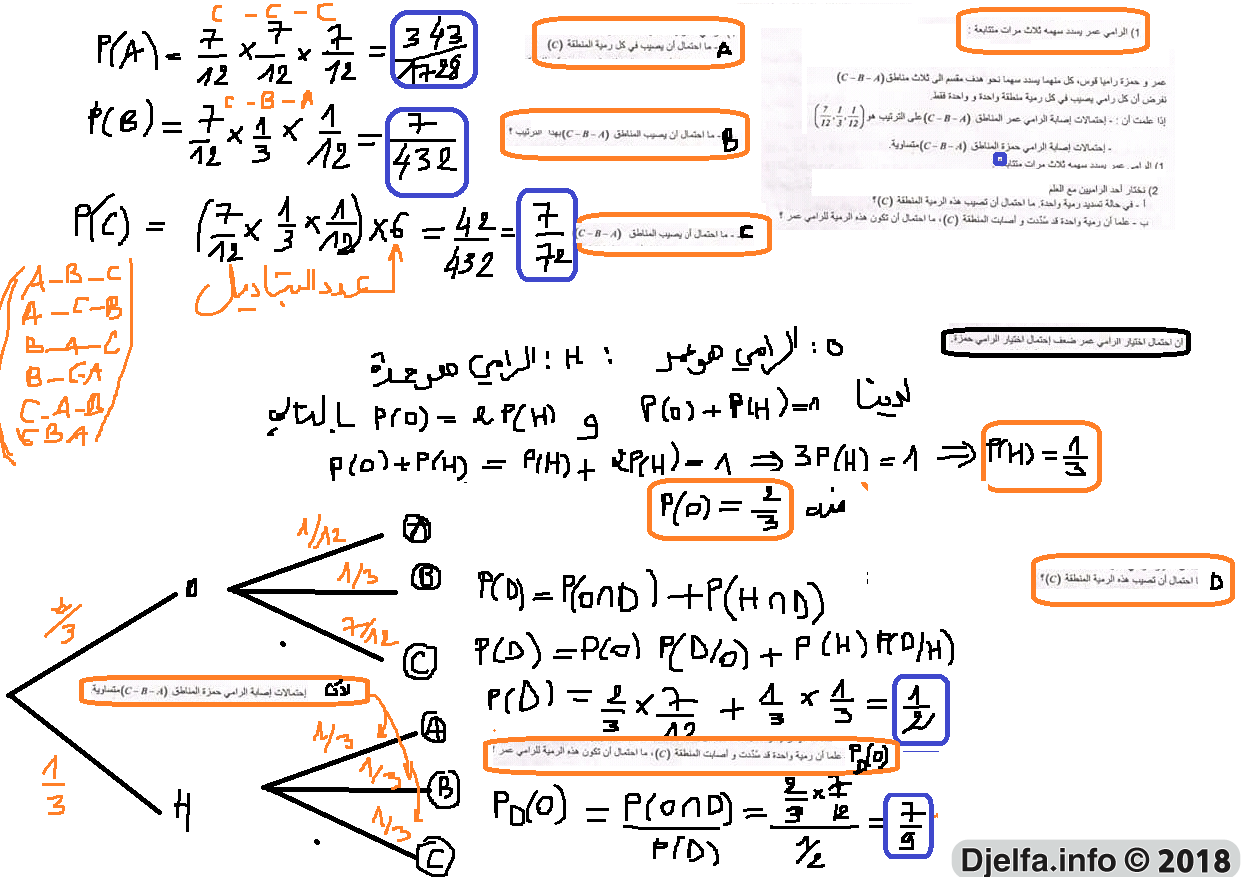 1) الرامي عمر يسدد سهمه ثلاث مرات متتابعة :
عمر و حمزة راميا قوس، كل منهما يسدد سهما نحو هدف مقسم الى ثلاث مناطق (C – B – A)
نفرض أن كل رامي يصيب في كل رمية منطقة واحدة و واحدة فقط.
إذا علمت أن : - إحتمالات إصابة الرامي عمر المناطق (C – B – A) على الترتيب هو (7/12, 1/3, 1/12)
- إحتمالات إصابة الرامي حمزة المناطق (C – B – A) متساوية.
1) الرامي عمر يسدد سهمه ثلاث مرات متتابعة
2) نختار أحد الراميين مع العلم
أ - في حالة تسديد رمية واحدة، ما احتمال أن تصيب هذه الرمية المنطقة (C)؟
ب - علما أن رمية واحدة قد سُدّدت و أصابت المنطقة (C)، ما احتمال أن تكون هذه الرمية للرامي عمر ؟
C – C – C
P(A) = 7/12 × 7/12 × 7/12 = 343/1728
A - ما احتمال أن يصيب في كل رمية المنطقة (C)
C – B – A
P(B) = 7/12 × 1/3 × 1/12 = 7/432
B - ما احتمال ان يصيب المناطق (C – B – A) بهذا الترتيب ؟
P(C) = (7/12 × 1/3 × 1/12) × 6 = 42/432 = 7/72
C - ما احتمال أن يصيب المناطق (C – B – A)
عدد التباديل
A – B – C
A – C – B
B – A – C
B – C A
C – A – B
C B A
ان احتمال اختيار الرامي عمر ضعف إحتمال اختيار الرامي حمزة.
O : الرامي هو عمر : H : الرامي هو حمزة
لدينا P(O) + P(H) = 1 و P(O) = 2P(H) بالتالي
P(O) + P(H) = P(H) + 2P(H) = 1 ⇒ 3P(H) = 1 ⇒ P(H) = 1/3
منه P(O) = 2/3
2/3
O
1/12
A
1/3
B
7/12
C
1/3
H
1/3
A
1/3
B
1/3
C
لأن إحتمالات إصابة الرامي حمزة المناطق (C – B – A) متساوية.
D ا احتمال أن تصيب هذه الرمية المنطقة (C)؟
P(D) = P(O∩D) + P(H∩D)
P(D) = P(O) P(D/O) + P(H) P(D/H)
P(D) = 2/3 × 7/12 + 1/3 × 1/3 = 1/2
P_D(O) علما أن رمية واحدة قد سُدّدت و أصابت المنطقة (C)، ما احتمال أن تكون هذه الرمية للرامي عمر ؟
P_D(O) = P(O∩D)/P(D) = (2/3 × 7/12)/(1/2) = 7/9
Djelfa.info © 2018